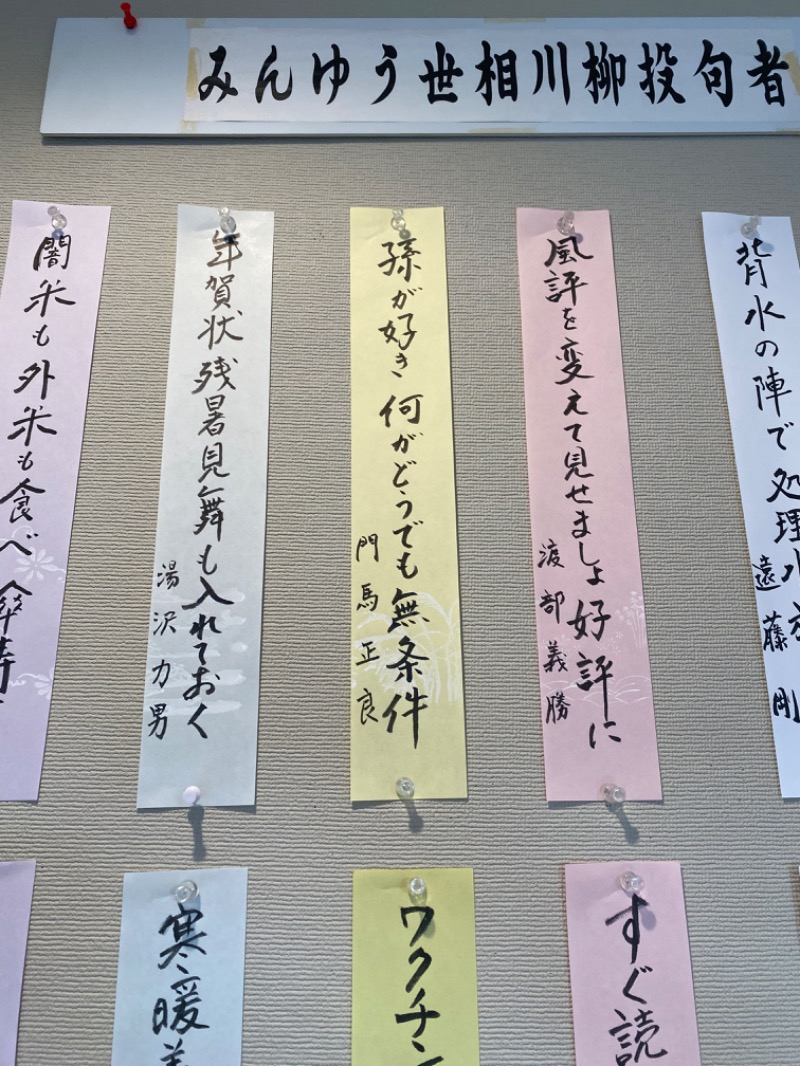 みんゆう世相川柳投句者
背水の陣で処理水
遠藤剛
風評を変えて見せましょ好評に
渡部義勝
孫が好き何がどうでも無条件
門馬正良
年賀状残暑見舞も入れておく
湯沢力男
闇米も外米も食べ傘寿
すぐ読
ワクチン
寒暖差